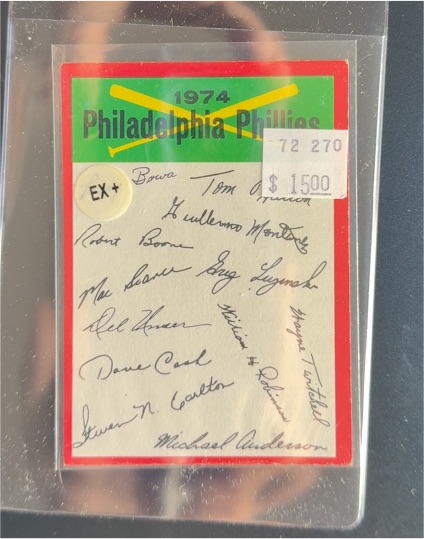 1974
Philadelphia Phillies
72 270
$ 15.00
EX+
Bowa
Tom
Guillermo Montanez
Robert Boone
Mac Scarce
Greg Luzinski
Del Unser
William H Robinson
Wayne Twitchell
Dave Cash
Steven N. Carlton
Michael Anderson